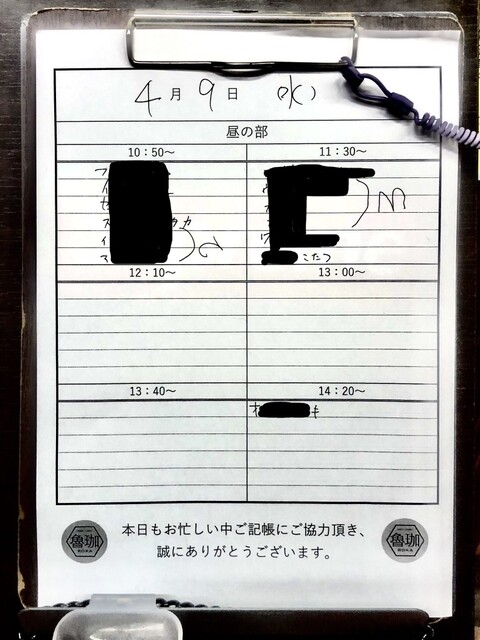 4月9日 (水)
昼の部
10:50〜 11:30〜
フ
イ
セ
ス カ
イ
マ
ウ
こたつ
2
3
12:10〜 13:00〜
13:40〜 14:20〜
キ
本日もお忙しい中ご記帳にご協力頂き、
誠にありがとうございます。
魯珈
ROKA
魯珈
ROKA